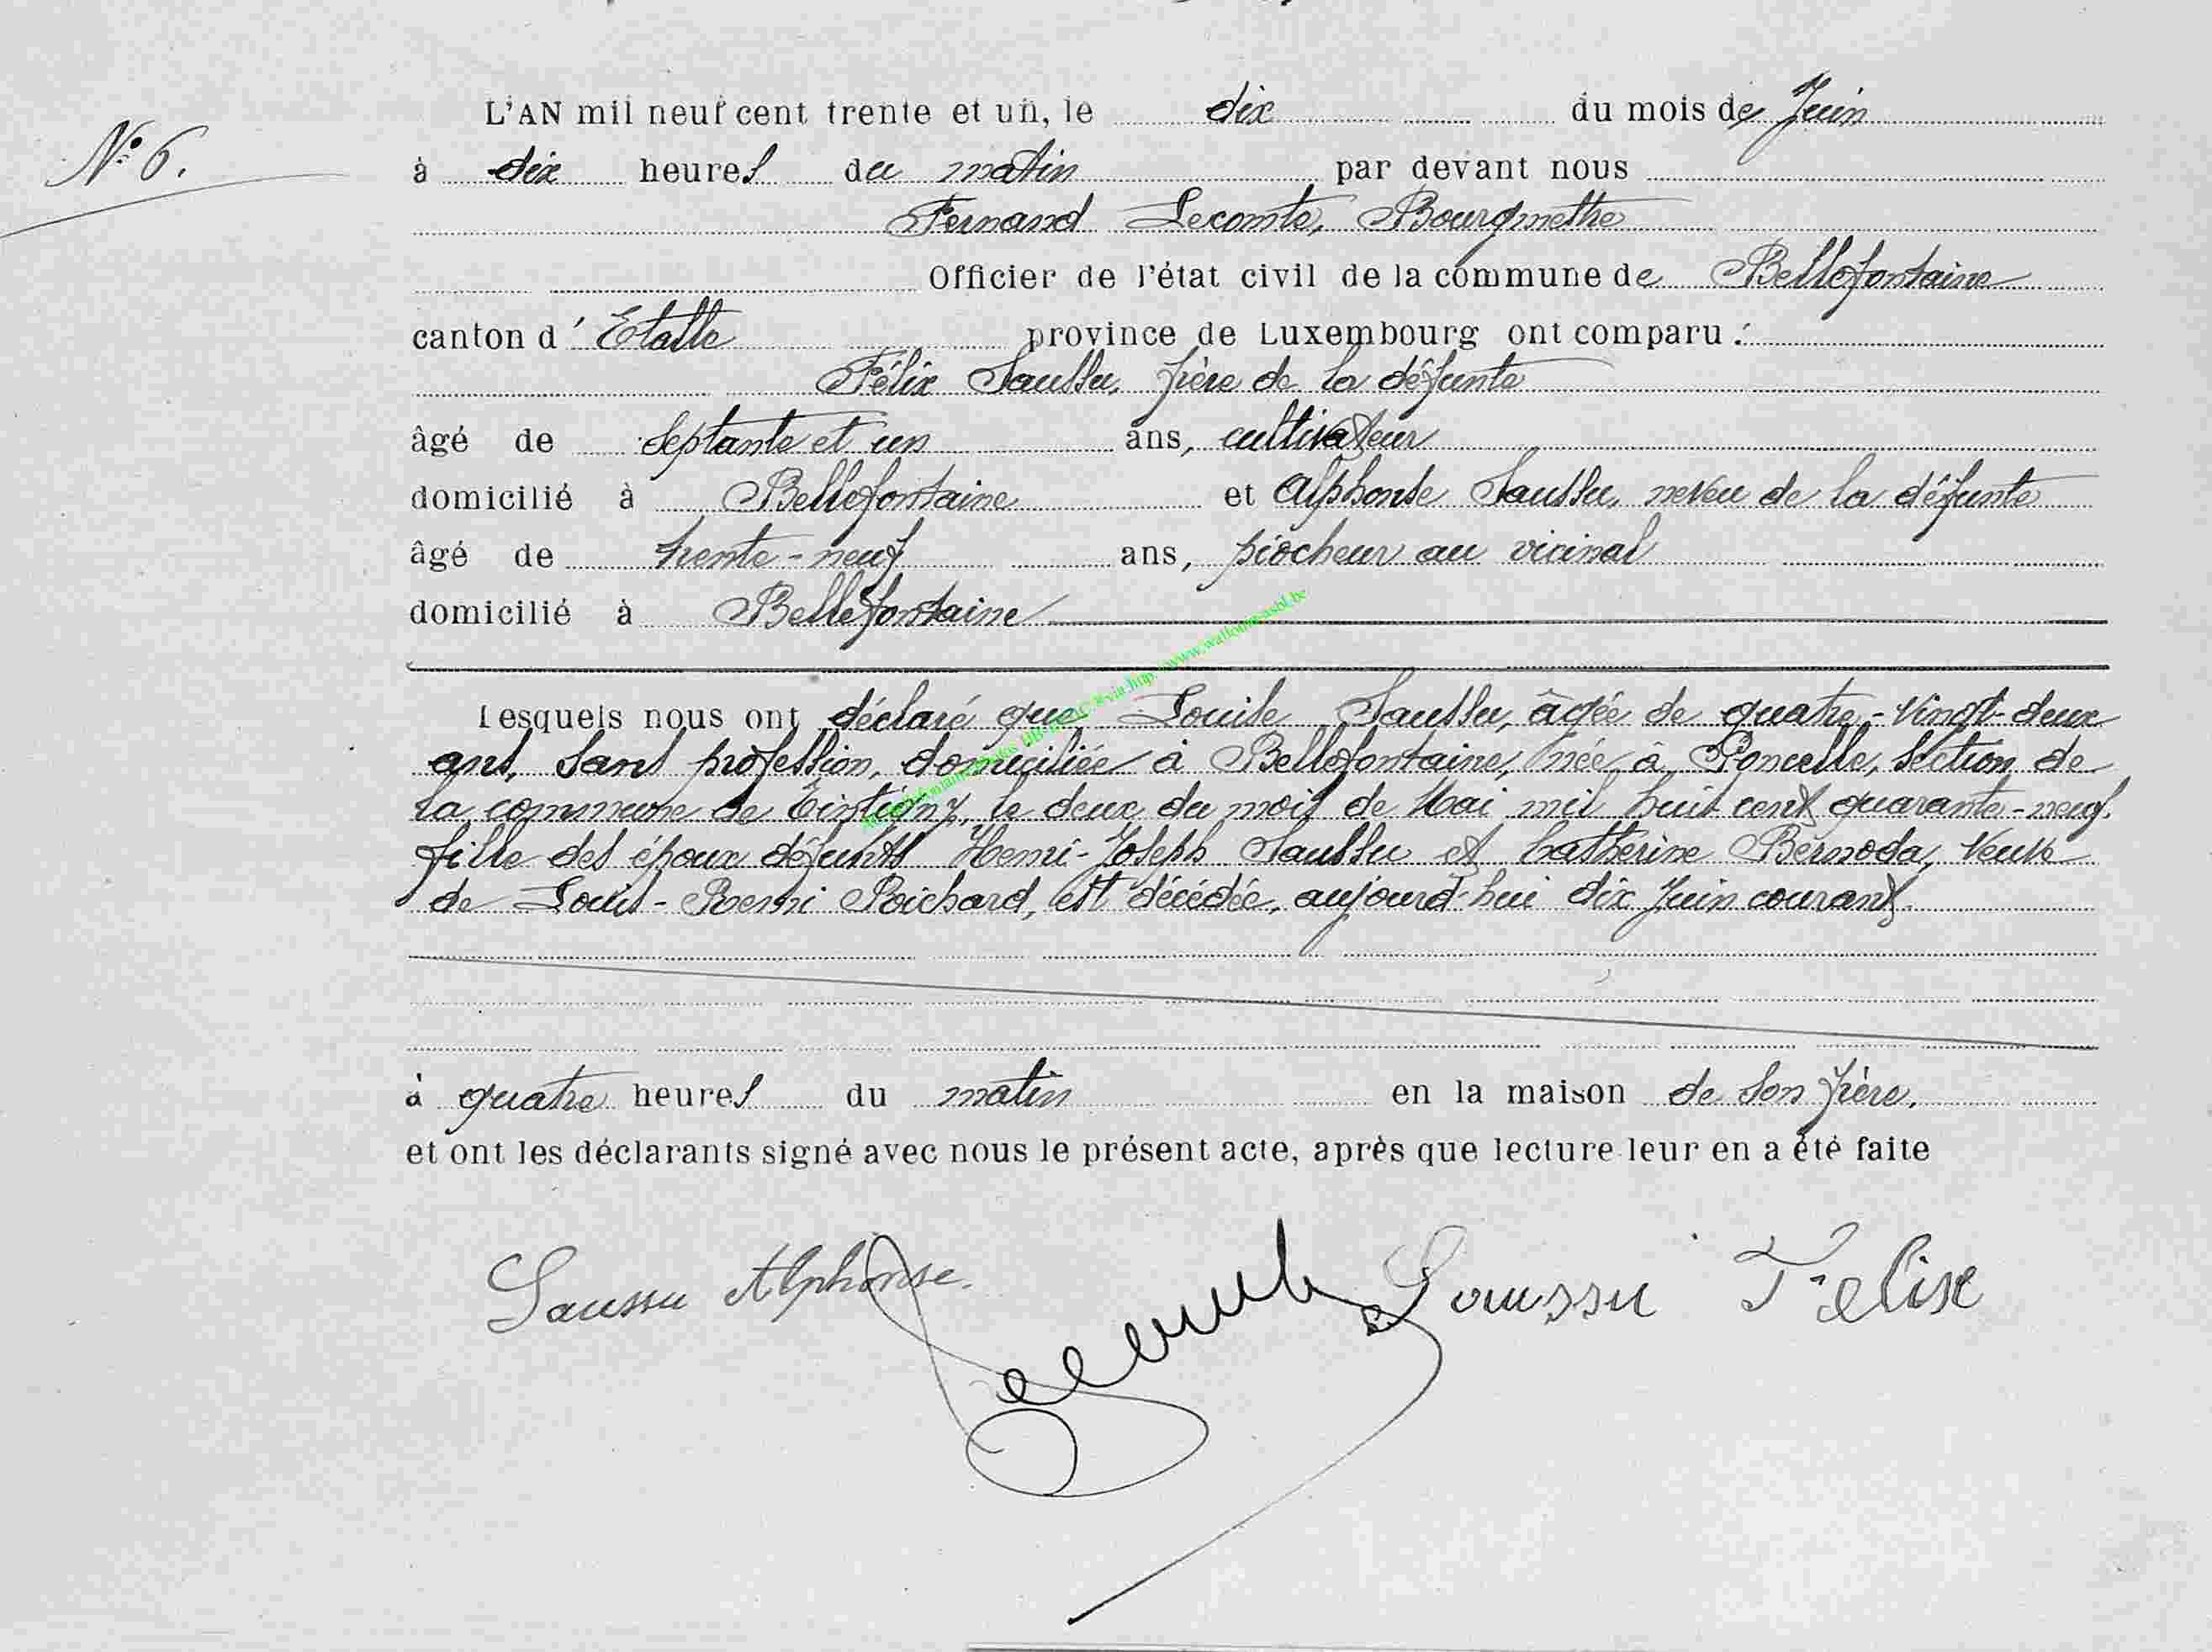 N° 6.
L'AN mil neuf cent trente et un, le dix du mois de Juin
à dix heures du matin par devant nous
Fernand Lecomte, Bourgmestre
Officier de l'état civil de la commune de Bellefontaine
canton d'Etalle province de Luxembourg ont comparu :
Félix Saussu, frère de la défunte
âgé de septante et un ans, cultivateur
domicilié à Bellefontaine et Alphonse Saussu, neveu de la défunte
âgé de trente-neuf ans, piocheur au vicinal
domicilié à Bellefontaine
Lesquels nous ont déclaré que Louise Saussu, âgée de quatre-vingt-deux
ans, sans profession, domiciliée à Bellefontaine, née à Poncelle, section de
la commune de Tintigny, le deux du mois de Mai mil huit cent quarante-neuf.
fille des époux défunts Henri-Joseph Saussu et Catherine Bernoda, veuve
de Louis-Remi Poichard, est décédée, aujourd'hui dix Juin courant.
à quatre heures du matin en la maison de son frère.
et ont les déclarants signé avec nous le présent acte, après que lecture leur en a été faite
Saussu Alphonse. Lecomte Saussu Félix